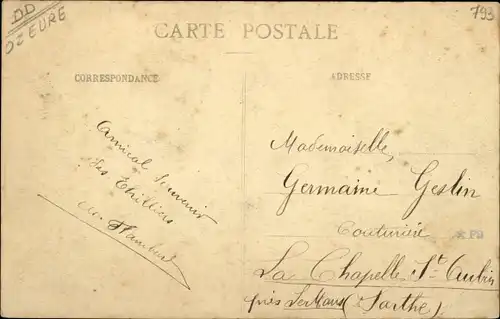 DD
OZ EURE
793
CARTE POSTALE
CORRESPONDANCE
ADRESSE
Amical Souvenir
des Thilliers
Mademoiselle,
Germaine Geslin
Couturière
La Chapelle St Aubin
près Le Mans (Sarthe)